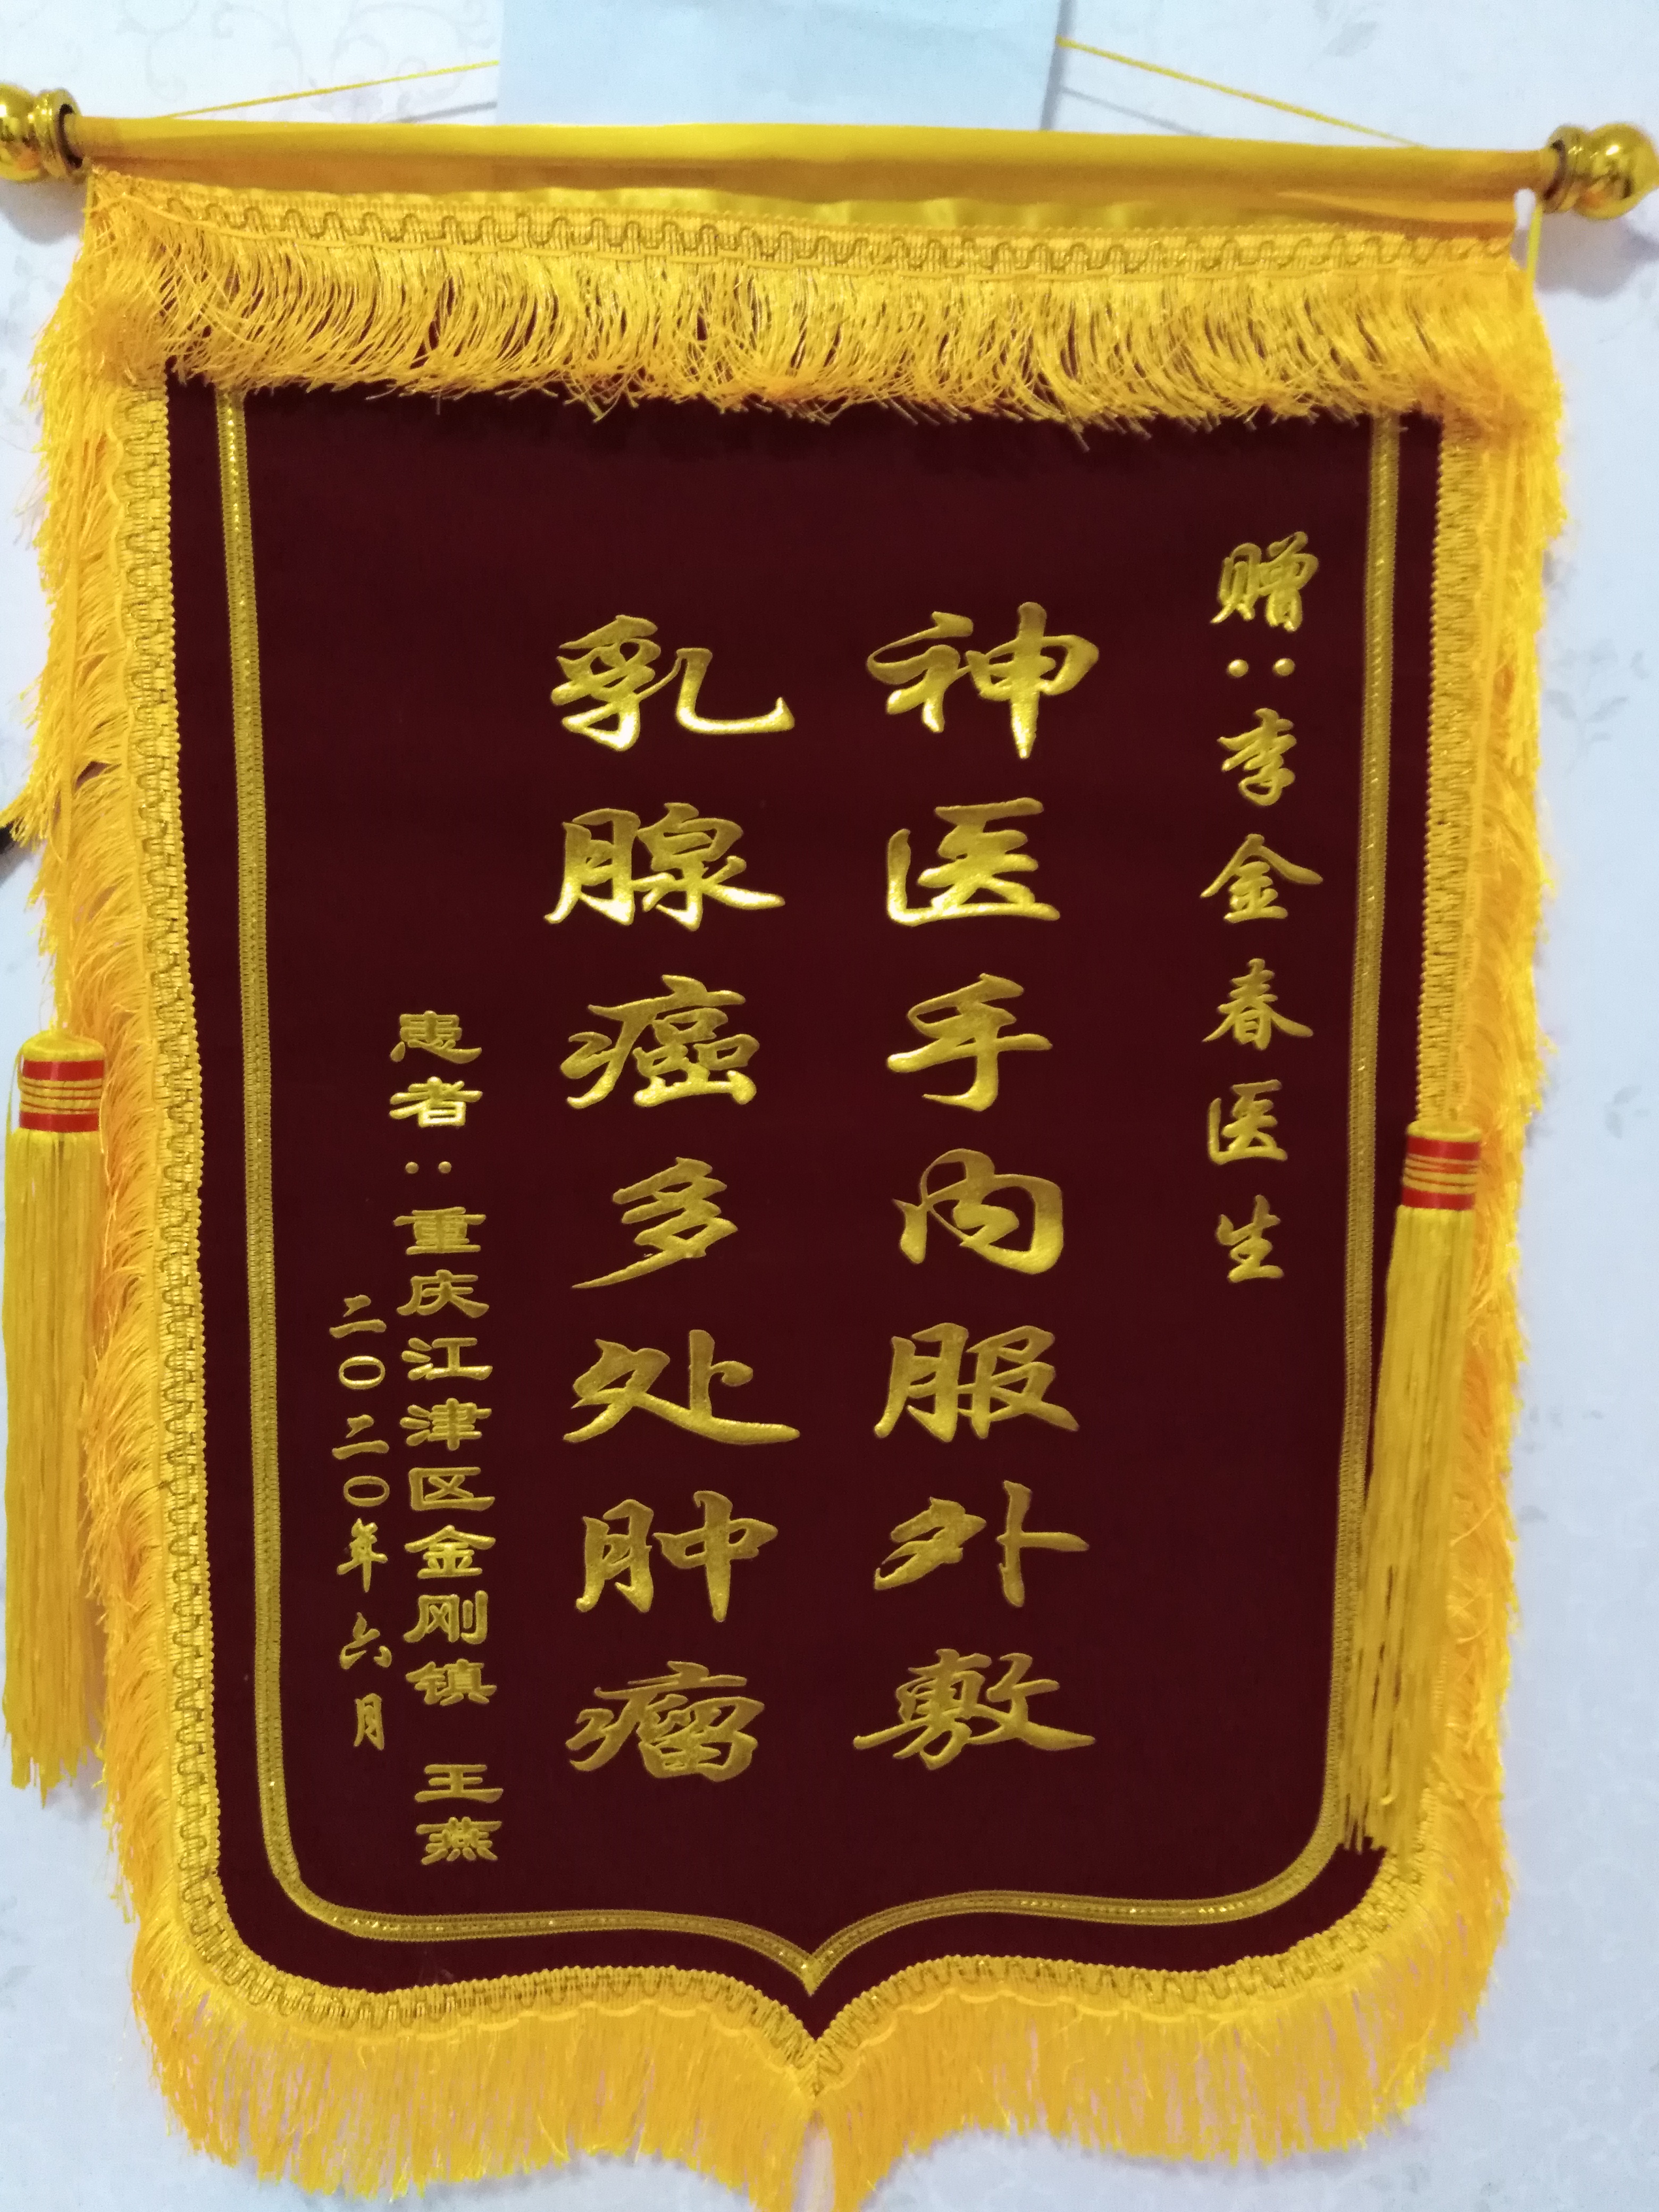 赠：李金春医生
神医手内服外敷
乳腺癌多处肿瘤
患者：重庆江津区金刚镇 王燕
二〇二〇年六月